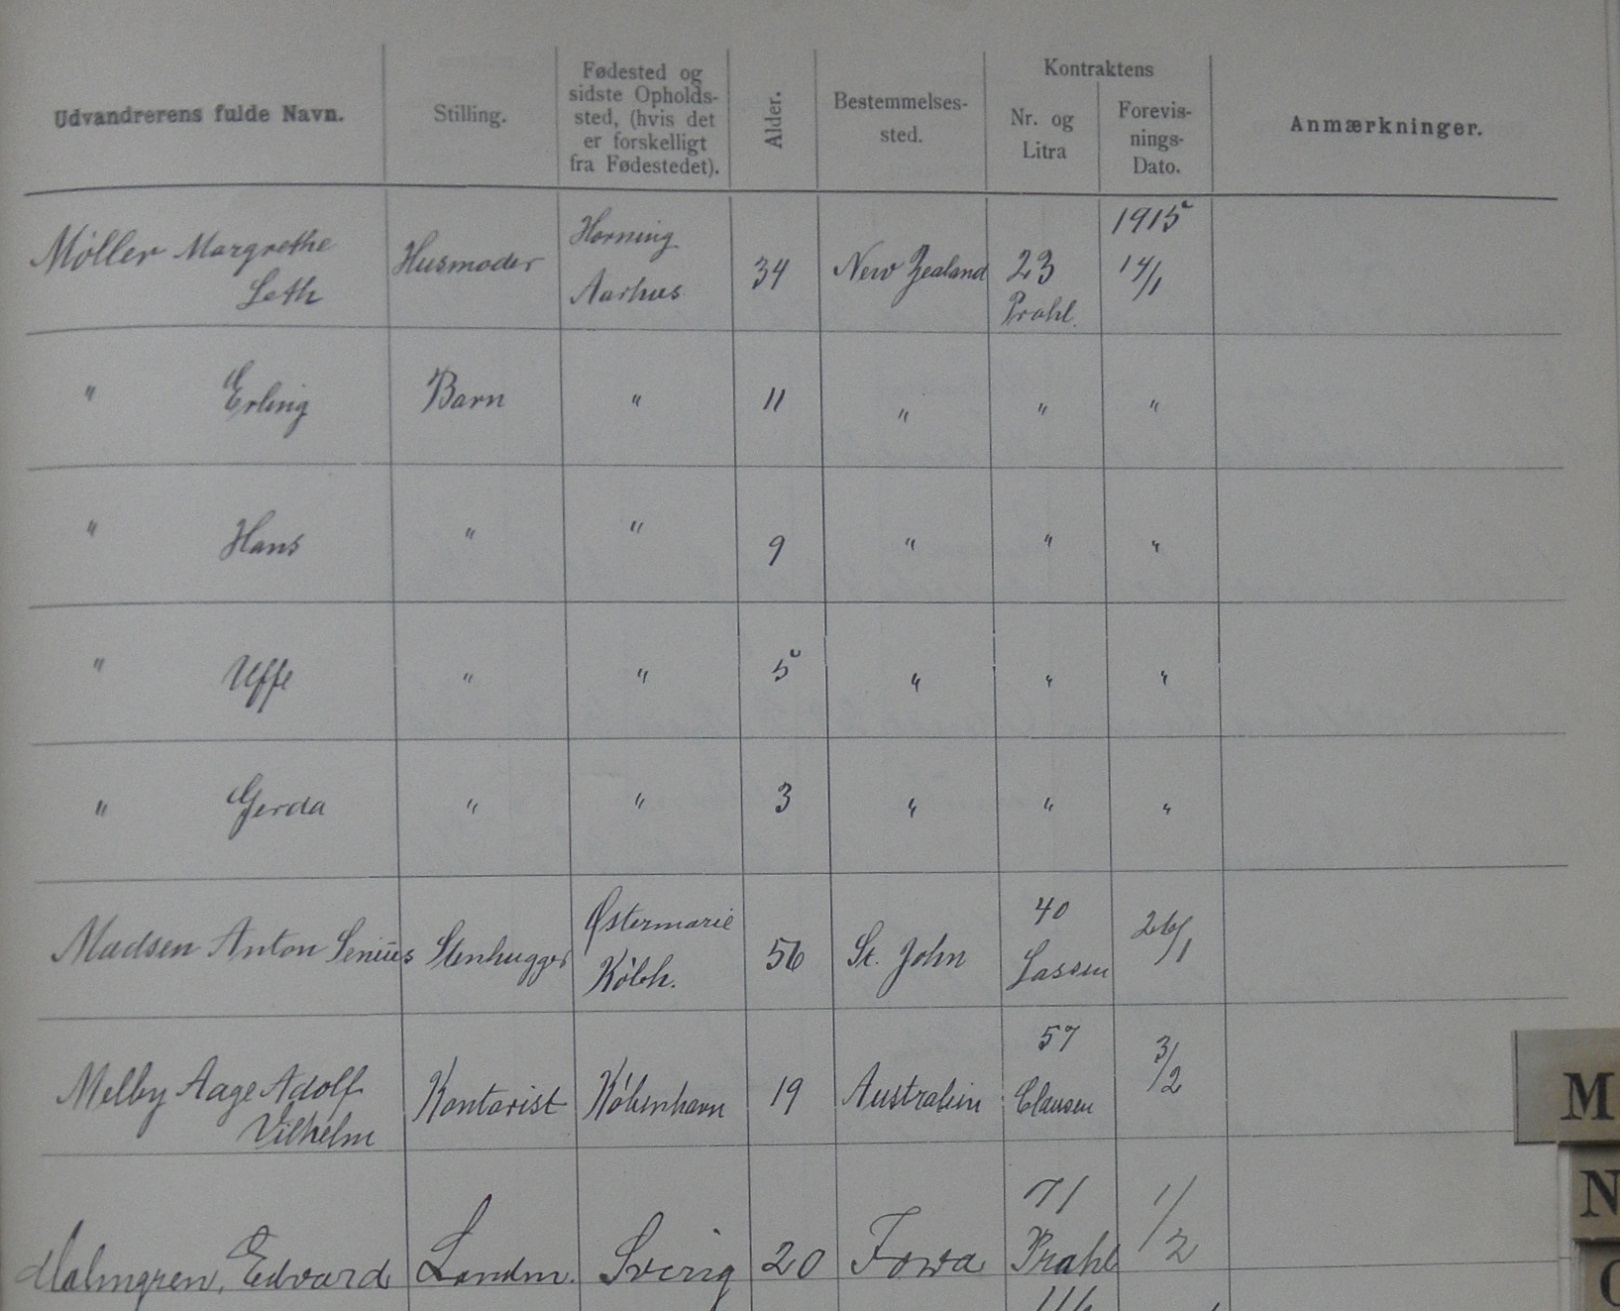 Udvandrerens fulde Navn.
Stilling.
Fødested og
sidste Opholds-
sted, (hvis det
er forskelligt
fra Fødestedet).
Alder.
Bestemmelses-
sted.
Kontraktens
Nr. og
Litra
Forevis-
nings-
Dato.
Anmærkninger.
Møller Margrethe
Leth
Husmoder
Horning
Aarhus
34
New Zealand
23
Prahl.
1915
14/1
" Erling
Barn
"
11
"
"
"
" Hans
"
"
9
"
"
"
" Uffe
"
"
5
"
"
"
" Gerda
"
"
3
"
"
"
Madsen Anton Seniŭs
Stenhugger
Østermarie
Købh.
56
St. John
40
Lassen
26/1
Melby Aage Adolf
Vilhelm
Kontorist
København
19
Australien
57
Clausen
3/2
Malmgren, Edvard
Landm.
Sverig
20
Iowa
71
Prahl
1/2
M
N